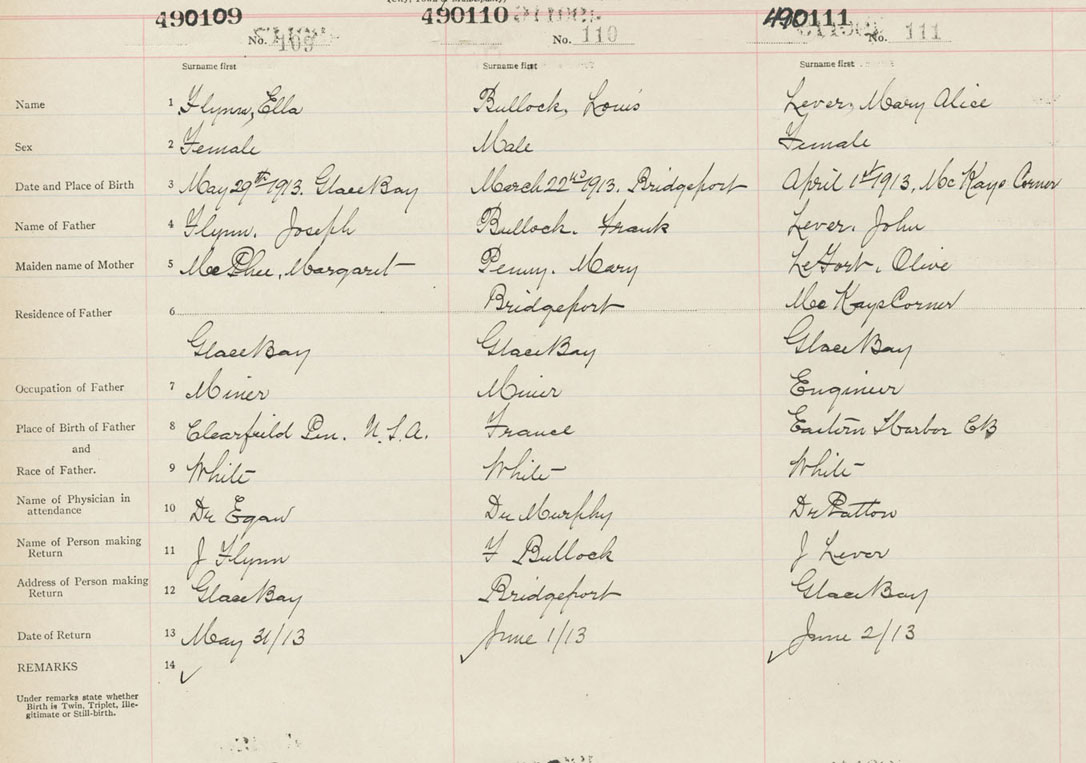 490109 490110 490111
No. 109 No. 110 No. 111
Surname first Surname first Surname first
Name 1 Flynn, Ella Bullock, Louis Lever, Mary Alice
Sex 2 Female Male Female
Date and Place of Birth 3 May 29th 1913. Glace Bay March 22nd 1913. Bridgeport April 1st 1913, Mc Kays Corner
Name of Father 4 Flynn, Joseph Bullock. Frank Lever. John
Maiden name of Mother 5 Mc Phee, Margaret Penny. Mary LeFort, Olive
Residence of Father 6 Bridgeport Mc Kays Corner
Glace Bay Glace Bay Glace Bay
Occupation of Father 7 Miner Miner Engineer
Place of Birth of Father 8 Clearfield Pen. U.S.A. France Eastern Harbor CB
and
Race of Father. 9 White White White
Name of Physician in
attendance 10 Dr Egan Dr Murphy Dr Patton
Name of Person making
Return 11 J Flynn F Bullock J Lever
Address of Person making
Return 12 Glace Bay Bridgeport Glace Bay
Date of Return 13 May 31/13 June 1/13 June 2/13
REMARKS 14 ✓ ✓ ✓
Under remarks state whether
Birth is Twin, Triplet, Ille-
gitimate or Still-birth.